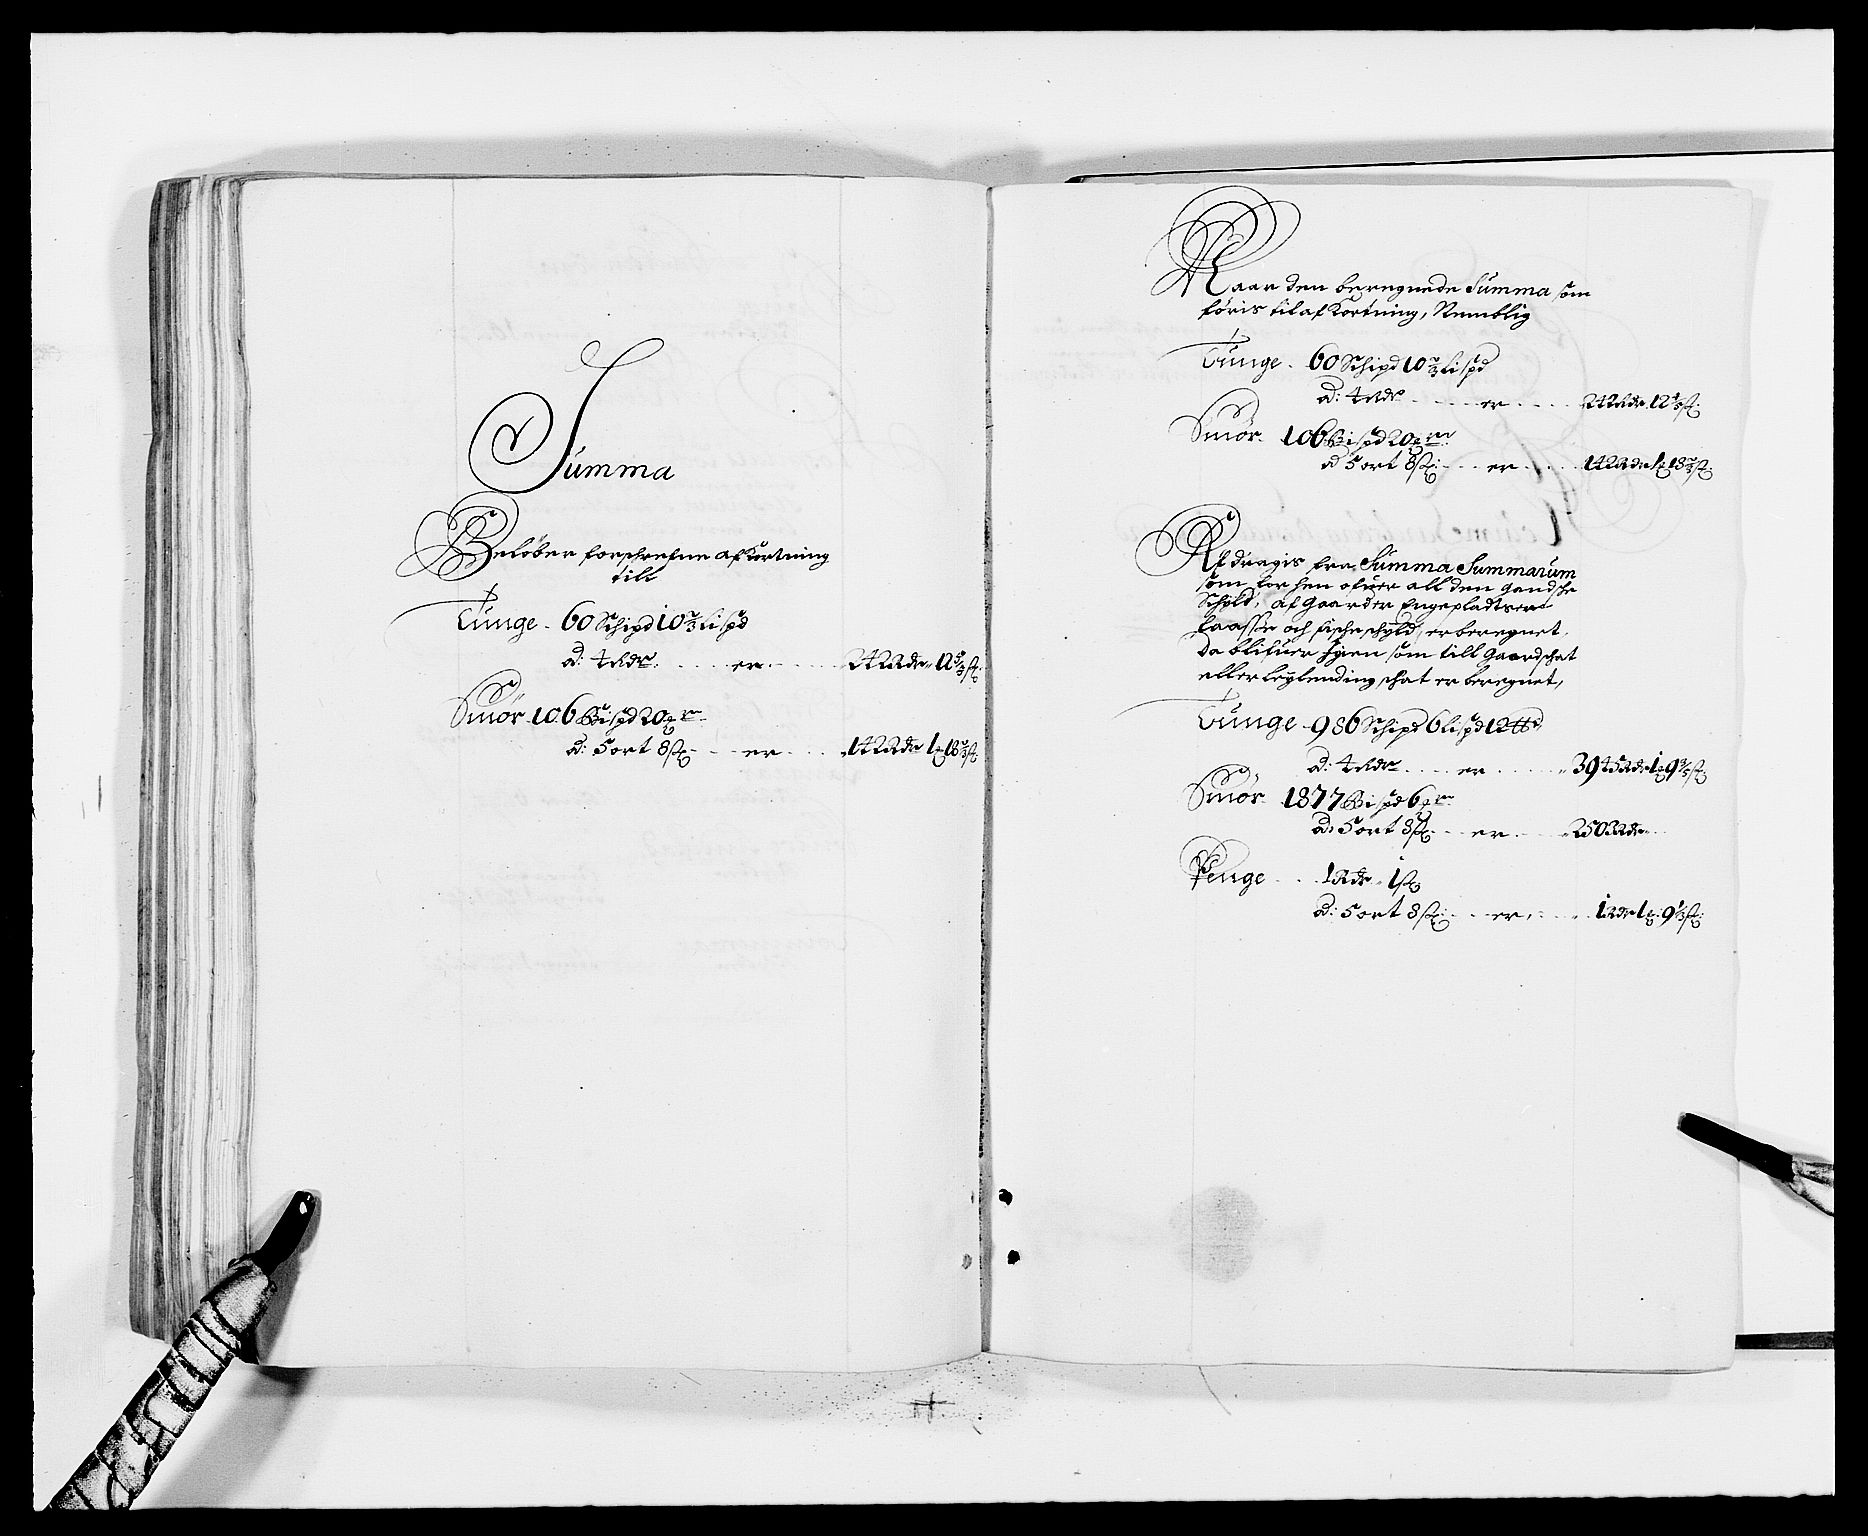 Summa
Beløber forschrefne afkortning
till
Tunge - 60 Schipd 10 2/3 lispd
a: 4 Rdr. . . . . er . . . . 242 Rdr - 12 4/5 ſ:
Smør - 106 Bispd 20 mr
a: 5 ort 8 ſ: - . . er . . . . 142 Rdr 1 18 2/3 ſ
Naar den beregnede Summa som
føris til afkortning, Nemblig
Tunge - 60 Schipd 10 2/3 lispd
a: 4 Rdr . . . . er . . . . 242 Rdr 12 4/5 ſ:
Smør - 106 Bispd 20 mr
a 5 ort 8 ſ: - . . er . . . . 142 Rdr 1 18 2/3 ſ:
Afdragis fra Summa Summarum
som for hen ofuer all den gandsche
Schyld, af Gaarder Engepladtser
laasse och fische schyld, er beregnet,
Da blifuer igien som till Gaardschat
eller leylending schat er beregnet,
Tunge - 986 Schipd 6 lispd 12
a: 4 Rdr . . . . er . . . . 3945 Rdr 1 9 3/5 ſ
Smør - 1877 Bispd 6 mr
a: 5 ort 8 ſ: - . . er . . . . 2503 Rdr - . .
Penge . . . 1 Rdr - 1 ſ
a: 5 ort 8 ſ: - . . er . . . . 1 Rdr 1 9 1/3 ſ: